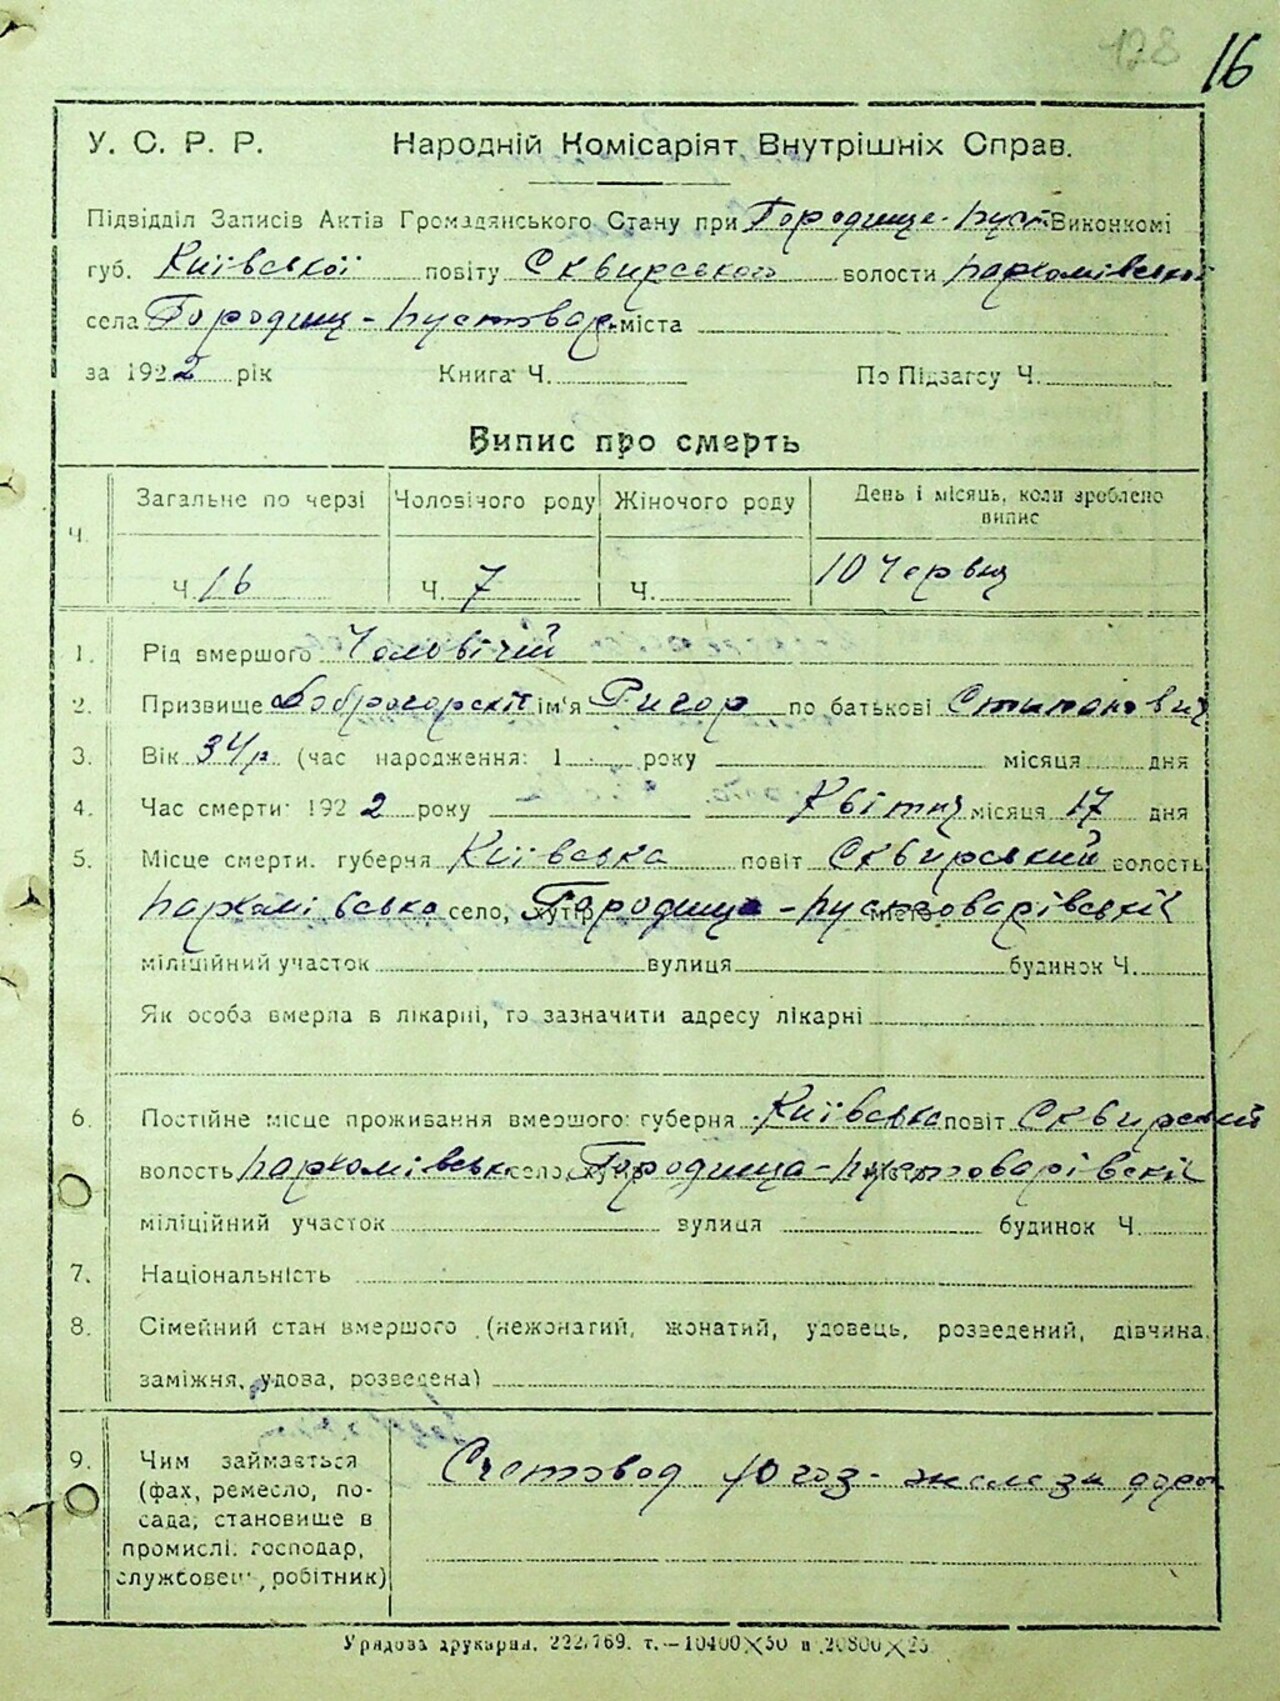 128 16
У. С. Р. Р. Народній Комісаріят Внутрішніх Справ.
Підвідділ Записів Актів Громадянського Стану при Городище-Пуст Виконкомі
губ. Київської повіту Сквирського волости Пархомівської
села Городищ-Пустовар. міста
за 1922 рік Книга Ч. По Підзагсу Ч.
Випис про смерть
Загальне по черзі Чоловічого роду Жіночого роду День і місяць, коли зроблено
випис
Ч.
Ч. 16 Ч. 7 Ч. 10 Червня
1. Рід вмершого Чоловічий
2. Призвище Доброгорскій ім'я Ригор по батькові Стипанович
3. Вік 34р. (час народження: 1 року місяця дня
4. Час смерти: 1922 року Квітня місяця 17 дня
5. Місце смерти. губерня Київська повіт Сквирський волость
Пархомівська село, хутір Городище-Пустоварівській місто
міліційний участок вулиця будинок Ч.
Як особа вмерла в лікарні, то зазначити адресу лікарні
6. Постійне місце проживання вмершого: губерня Київська повіт Сквирский
волость Пархомівськ село, хутір Городища-Пустоварівскій
міліційний участок вулиця будинок Ч.
7. Національність
8. Сімейний стан вмершого (нежонатий, жонатий, удовець, розведений, дівчина,
заміжня, удова, розведена)
9. Чим займається Счетовод Юго з. железн дорог
(фах, ремесло, по-
сада; становище в
промислі: господар,
службовець, робітник)
Урядова друкарня. 222/769. т.—10400×50 и 20800×25.